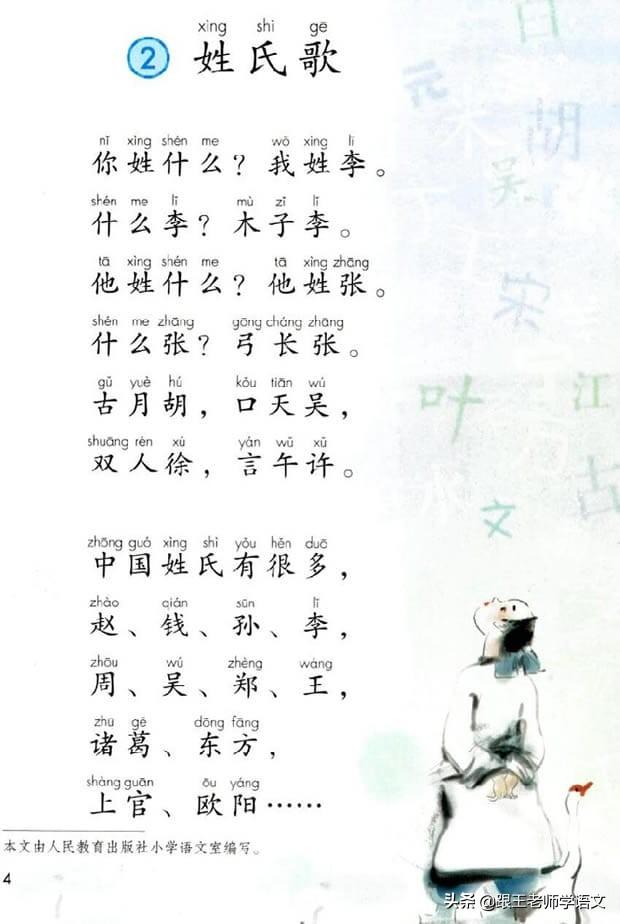 xìng shì gē
2 姓氏歌
nǐ xìng shén me wǒ xìng lǐ
你姓什么？我姓李。
shén me lǐ mù zǐ lǐ
什么李？木子李。
tā xìng shén me tā xìng zhāng
他姓什么？他姓张。
shén me zhāng gōng cháng zhāng
什么张？弓长张。
gǔ yuè hú kǒu tiān wú
古月胡，口天吴，
shuāng rén xú yán wǔ xǔ
双人徐，言午许。
zhōng guó xìng shì yǒu hěn duō
中国姓氏有很多，
zhào qián sūn lǐ
赵、钱、孙、李，
zhōu wú zhèng wáng
周、吴、郑、王，
zhū gě dōng fāng
诸葛、东方，
shàng guān ōu yáng
上官、欧阳……
本文由人民教育出版社小学语文室编写。
4
元
胡
吴
宋
叶
江
古
文
头条 @跟王老师学语文